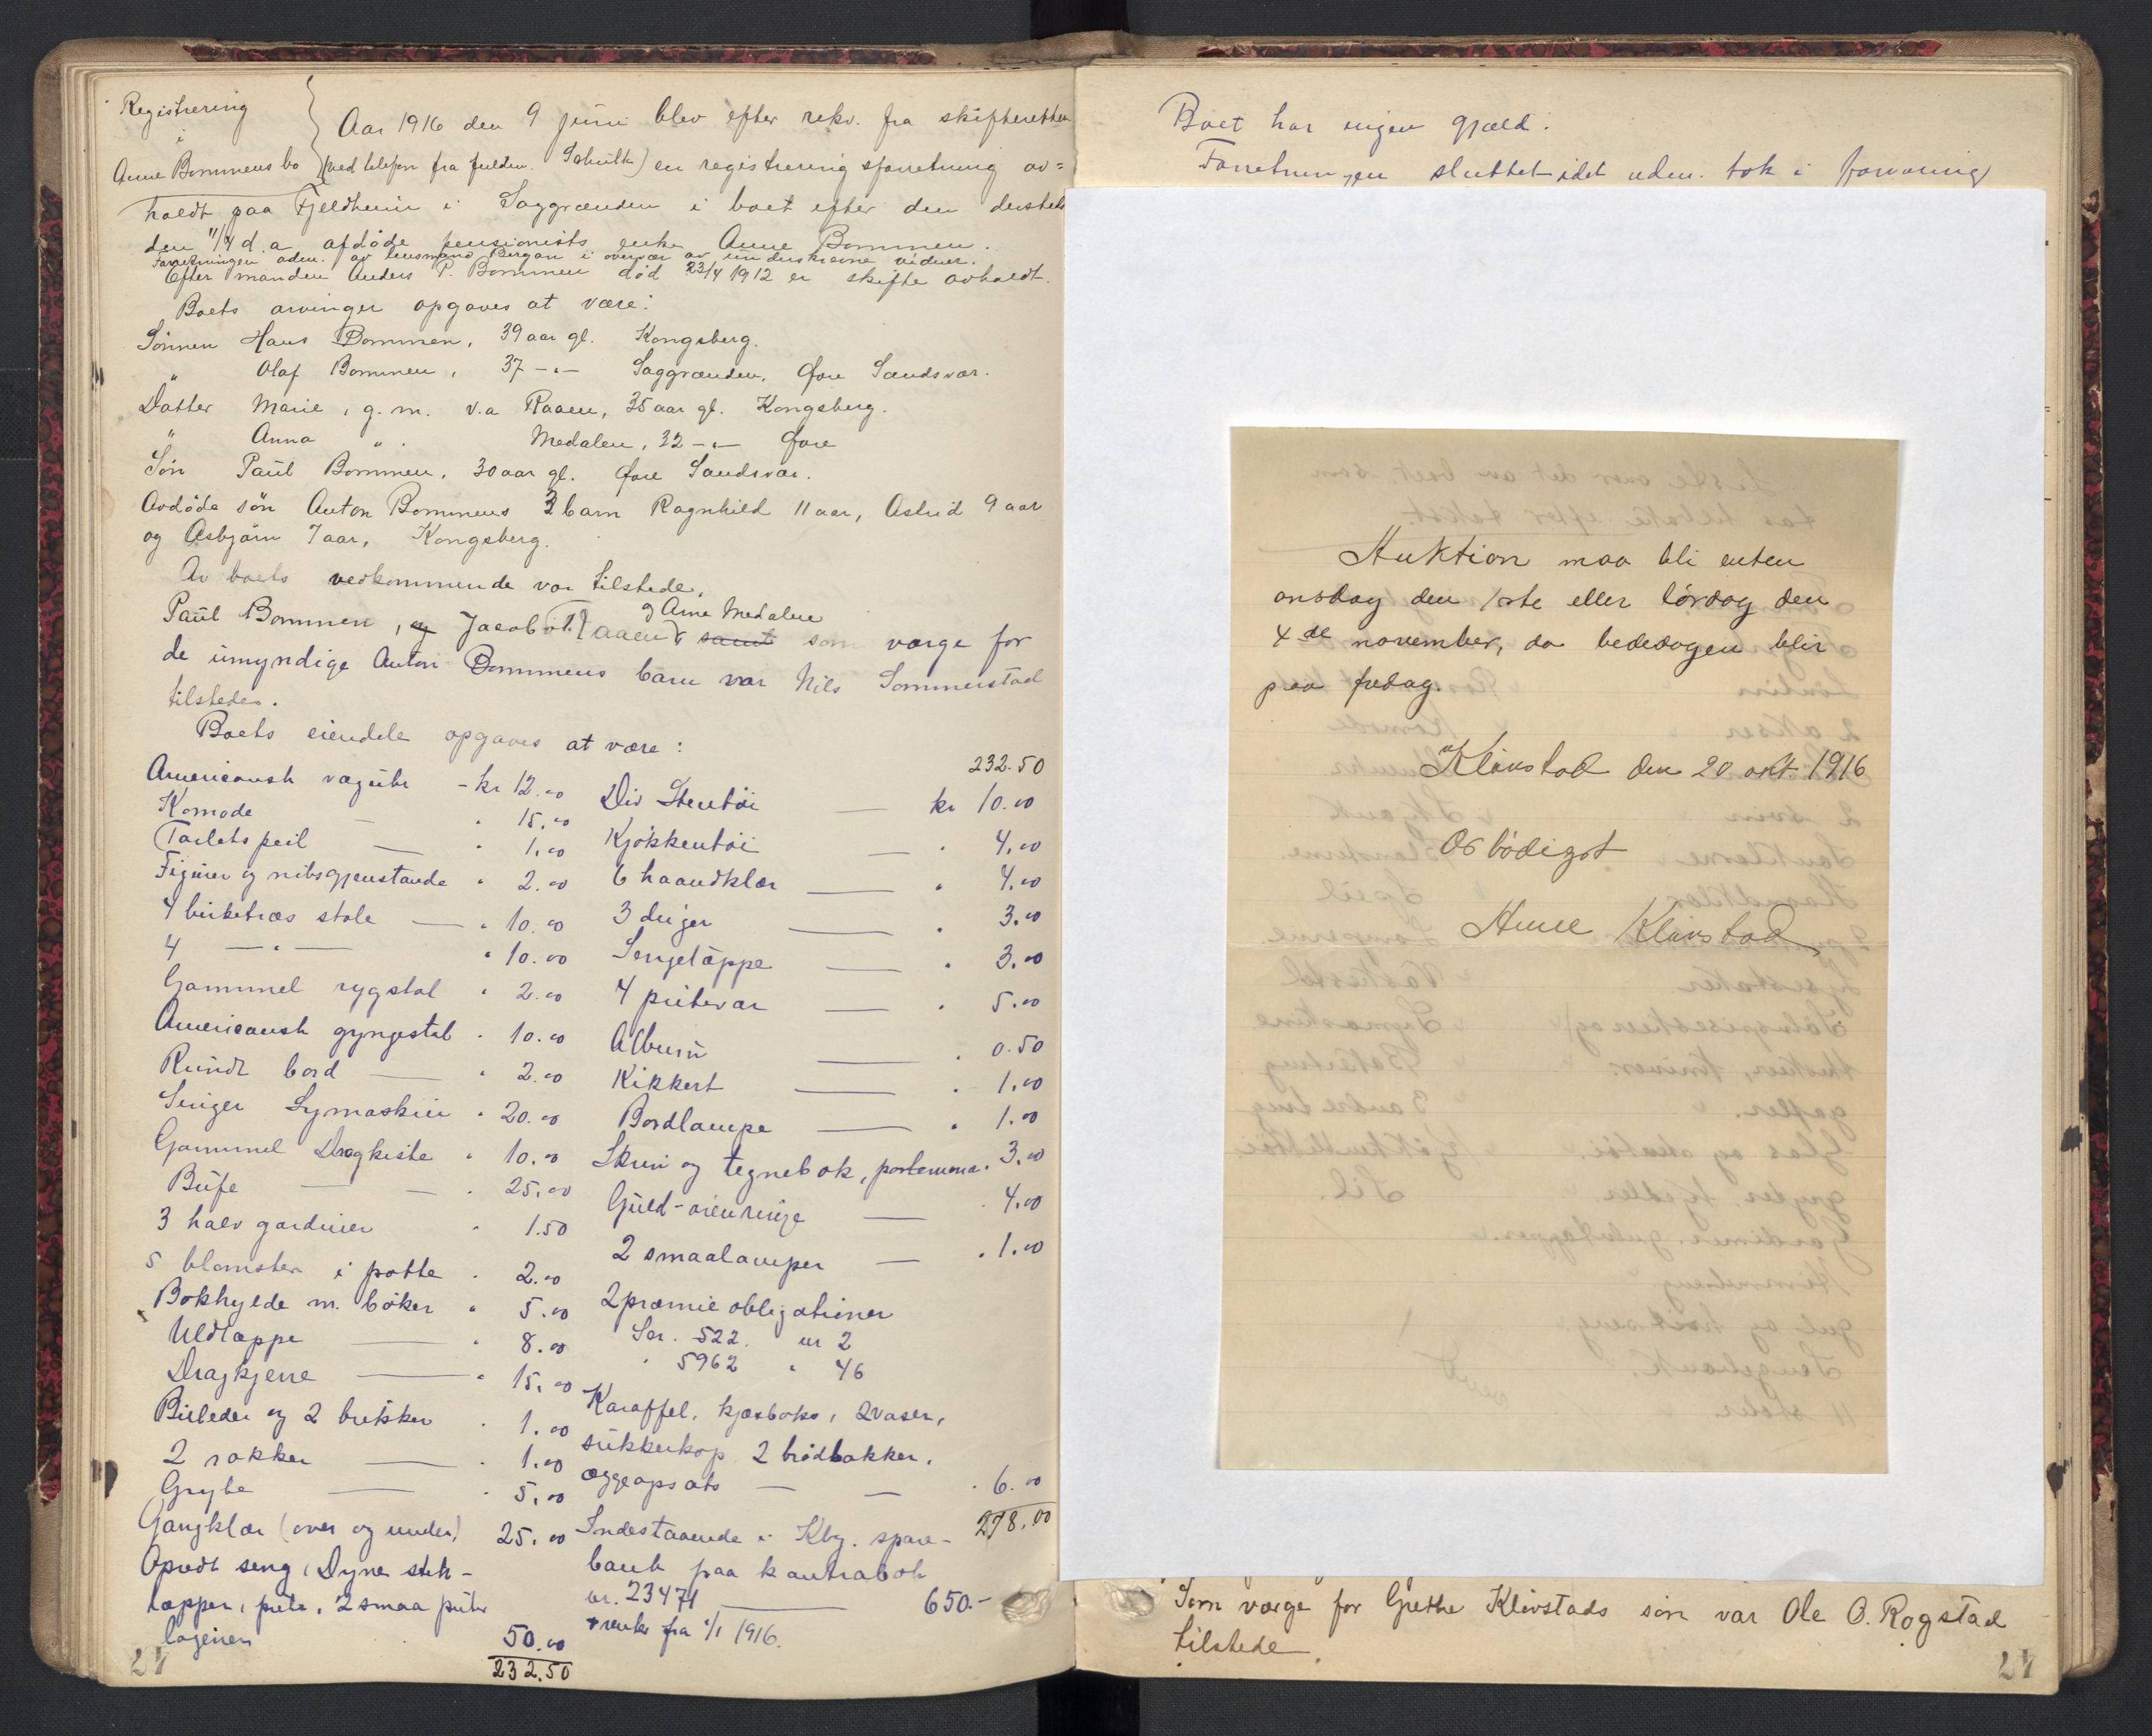 Registrering
i
Anne Bommens bo
Aar 1916 den 9 juni blev efter rekv. fra skifteretten
(ved telefon fra fuldm. Schulth) en registreringsforretning av=
holdt paa Fjeldheim i Saggrænden i boet efter den dersteds
den 11/4 d.a. afdøde pensionists enke Anne Bommen.
Forretningen adm. av lensmand Bergan i overvær av underskrevne vidner.
Efter manden Anders P. Bommen død 23/4 1912 er skifte avholdt.
Boets arvinger opgaves at være:
Sønnen Hans Bommen, 39 aar gl. Kongsberg.
" Olaf Bommen, 37 -"- Saggrænden, Øvre Sandsvær.
Datter Marie, g.m. V.a Raaen, 35 aar gl. Kongsberg.
" Anna " . Medalen, 32 -"- Øvre
Søn Paul Bommen, 30 aar gl. Øvre Sandsvær.
Avdøde søn Anton Bommens 3 barn Ragnhild 11 aar, Astrid 9 aar
og Asbjørn 7 aar, Kongsberg.
Av boets vedkommende var tilstede,
og Arne Medalen
Paul Bommen, og Jacob Raaen samt som værge for
de umyndige Anton Bommens barn var Nils Sommerstad
tilstede.
Boets eiendele opgaves at være:
Americansk væguhr - kr 12.00
Komode — " 15.00
Toiletspeil — " 1.00
Figurer og nibsgjenstande " 2.00
4 birketræs stole — " 10.00
4 — " — " 10.00
Gammel rygstol " 2.00
Americansk gyngestol " 10.00
Rundt bord — " 2.00
Singer Symaskin " 20.00
Gammel Dragkiste " 10.00
Bufe — — " 25.00
3 halv gardiner " 1.50
5 blomster i potte " 2.00
Bokhylde m. bøker " 5.00
Uldtæppe — " 8.00
Dragkjerre — " 15.00
Billeder og 2 brikker " 1.00
2 rokker — " 1.00
Gryte — " 5.00
Gangklær (over og under) 25.00
Opredt seng, Dyne stik-
tæpper, pute, 2 smaa puter
lagener 50.00
232.50
24
232.50
Div Stentøi — kr 10.00
Kjøkkentøi — " 4.00
6 haandklær — " 4.00
3 duger — " 3.00
Sengetæppe — " 3.00
4 putevar — " 5.00
Album — " 0.50
Kikkert — " 1.00
Bordlampe — " 1.00
Skrin og tegnebok, portemone. 3.00
Guld-ørenringe — " 4.00
2 smaalamper — " 1.00
2 præmieobligationer
Ser. 522. nr 2
" 5962 " 46
Karaffel, kjæxboks, 2 vaser,
sukkerkop 2 brødbakker,
eggeopsats — — " 6.00
278.00
Indestaaende i Kbg. spare-
bank paa kontrabok
nr. 23471 — 650.-
+ renter fra 1/1 1916.
Boet har ingen gjæld.
Forretningen sluttet idet udm. tok i forvaring
Auktion maa bli enten
onsdag den 1ste eller lørdag den
4de november, da bededagen blir
paa fredag.
Kløvstad den 20 okt. 1916
Ærbødigst
Anne Kløvstad
Som værge for Grethe Kløvstads søn var Ole O. Rogstad
tilstede.
24